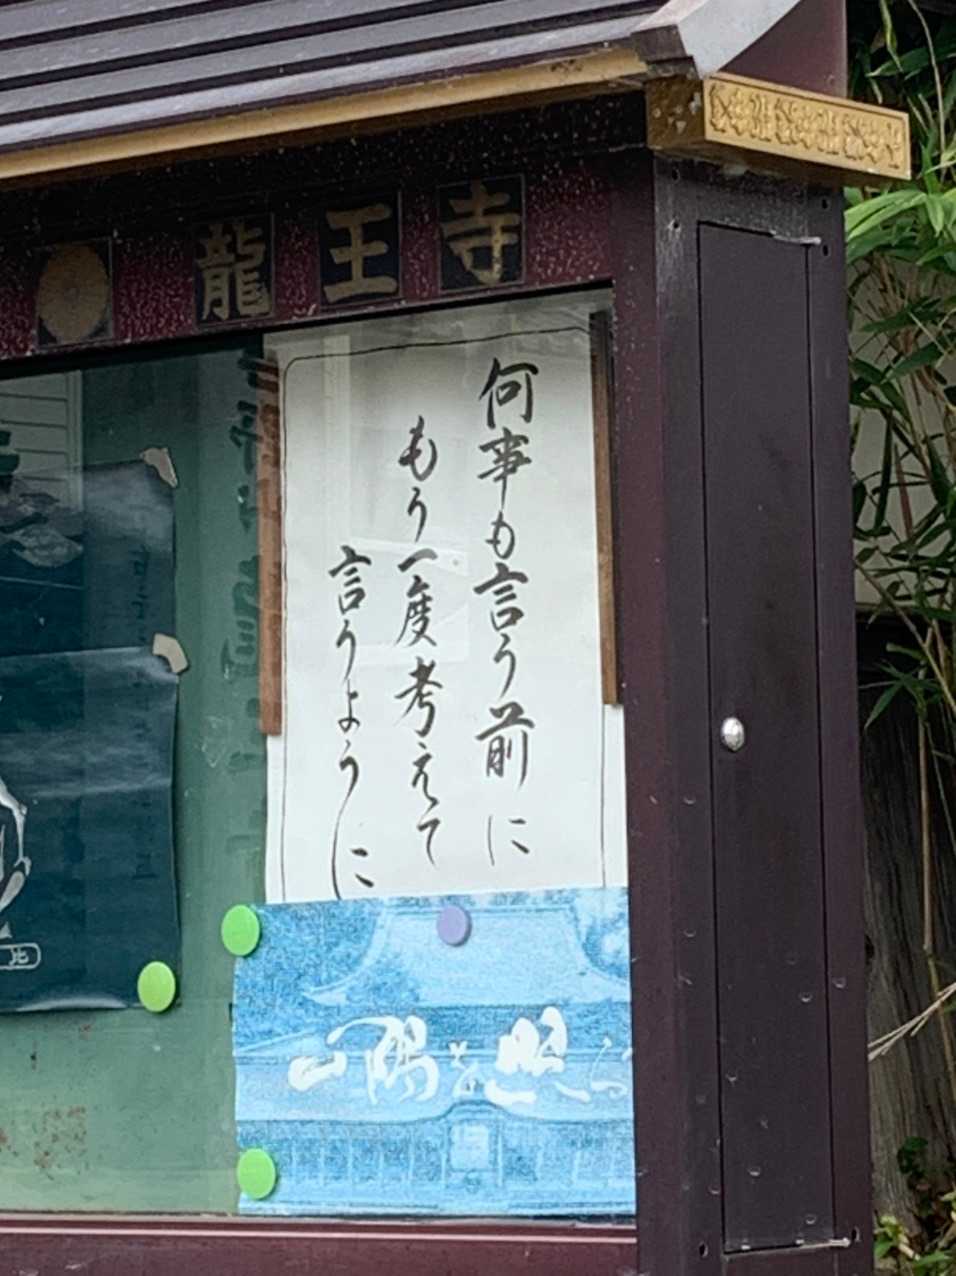 龍王寺
何事も言う前に
もう一度考えて
言うように
一隅を照らす
比